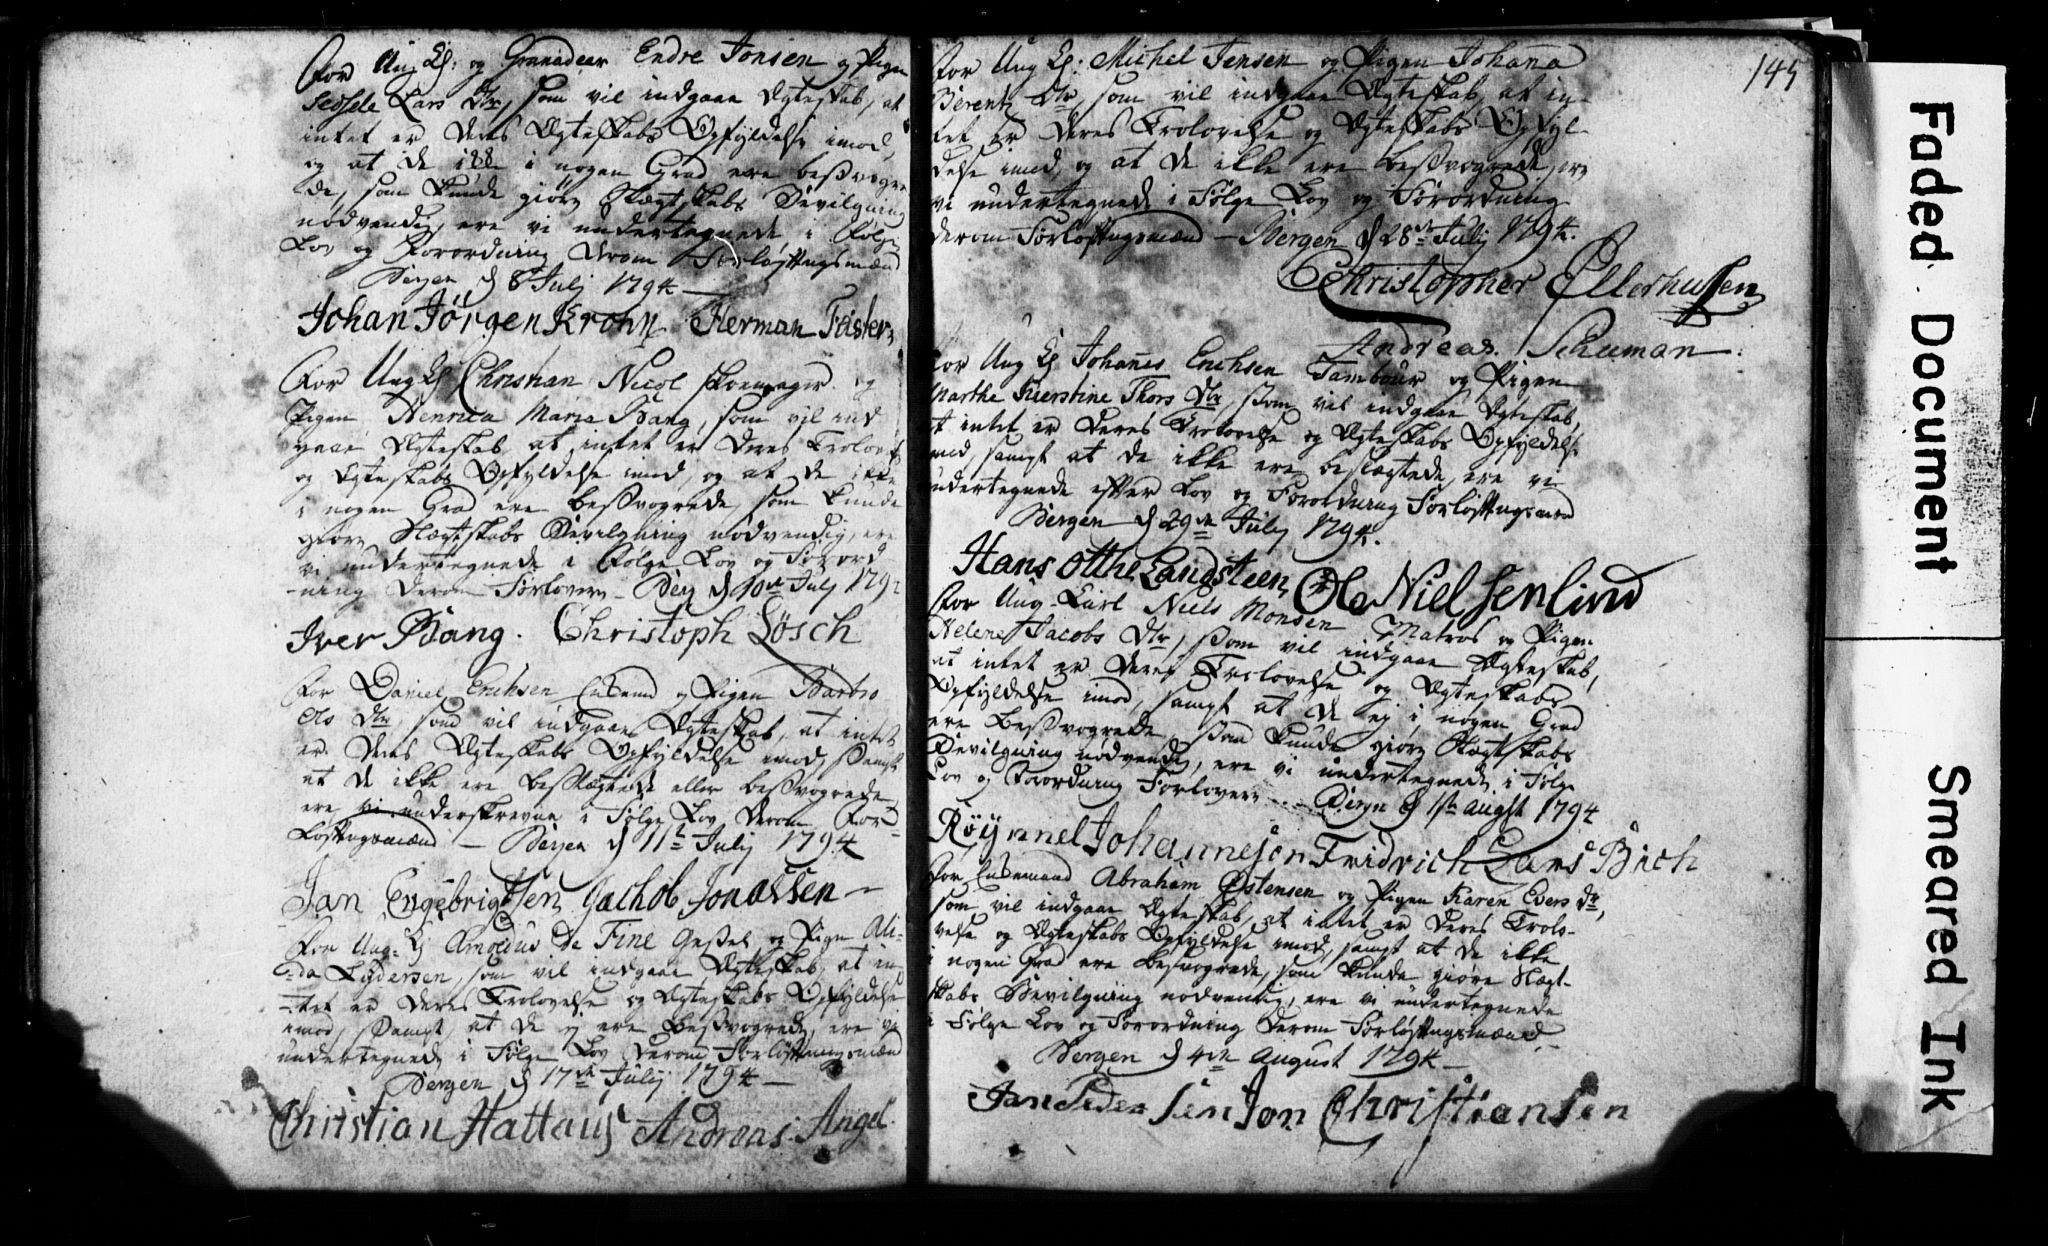 For Ung K: og Granadeer Endre Jonsen og Pigen
Sessele Lars Dtr, som vil indgaae Ægteskab, at
intet er deres Ægteskabs Opfyldelse imod,
og at de ikke i nogen Grad ere besvogre
de, som kunde giøre Slægtskabs Bevilgning
nødvendig, ere vi undertegnede i Følge
Lov og Forordning derom Forløftningsmænd
Bergen d 8 Julj 1794
Johan Jørgen Krohn Herman Faster
For Ung K Christian Nicol Skoemager og
Pigen Henrica Maria Bang, som vil ind
gaae Ægteskab, at intet er deres Trolov
og Ægteskabs Opfyldelse imod, og at de ikke
i nogen Grad ere besvogrede, som kunde
giøre Slægtskabs Bevilgning nødvendig, ere
vi undertegnede i Følge Lov og Forord
ning derom Forlovere Berg d 10de Julj 179
Iver Bang. Christoph Lösch
For Daniel Erichsen Enkemd og Pigen Barbro
Ols Dtr, som vil indgaae Ægteskab, at intet
er deres Ægteskabs Opfyldelse imod, samt
at de ikke ere beslægtede eller besvogrede
ere vi underskrevne i Følge Lov derom For
løftningsmænd – Bergen d 11te Julij 1794
Jan Engebrigtsen Jachob Jonassen
For Ung K Arnoldus De Fine Gesel og Pigen Ali-
da Lydersen, som vil indgaae Ægteskab, at in
tet er deres Trolovelse og Ægteskabs Opfyldelse
imod, samt at de ej ere besvogrede, ere vi
undertegnede i Følge Lov derom Forløftningsmænd
Bergen d 17de Julij 1794
Christian Hattaug Andreas Angel.
145
For Ung K: Michel Jensen og Pigen Johana
Berents Dtr, som vil indgaae Ægteskab, at in
tet er deres Trolovelse og Ægteskabs Opfyl-
delse imod, og at de ikke ere besvogrede, ere
vi undertegnede i Følge Lov og Forordning
derom Forløftningsmænd – Bergen d 28de Julij 1794.
Christopher Ellerhussen
Andreas Schuman
For Ung K Johanes Erichsen Tambour og Pigen
Marthe Kierstine Thors Dtr, som vil indgaae Ægteskab,
at intet er deres Trolovelse og Ægteskabs Opfyldelse
imod, samt at de ikke ere beslægtede, ere vi
undertegnede efter Lov og Forordning Forløftningsmænd
Bergen d 29de Julij 1794.
Hans Otthe Landsteen Ole Nielsen lind
For Ung Karl Niels Monsen Matros og Pigen
Helene Jacobs Dtr, som vil indgaae Ægteskab,
at intet er deres Trolovelse og Ægteskabs
Opfyldelse imod, samt at de ej i nogen Grad
ere besvogrede, som kunde giøre Slægtskabs
Bevilgning nødvendig, ere vi undertegnede i Følge
Lov og Forordning Forlovere Bergen d 1ste augst 1794
Røynnel Johannesen Fridrich Lars Bich
For Enkemand Abraham Østensen og Pigen Karen Evers Dtr,
som vil indgaae Ægteskab, at intet er deres Trolo-
velse og Ægteskabs Opfyldelse imod, samt at de ikke
i nogen Grad ere besvogrede, som kunde giøre Slægt-
skabs Bevilgning nødvendig, ere vi undertegnede
i Følge Lov og Forordning derom Forløftningsmænd
Bergen d 4de August 1794
Jan Pedersen Jon Christiansen
Faded Document
Smeared Ink